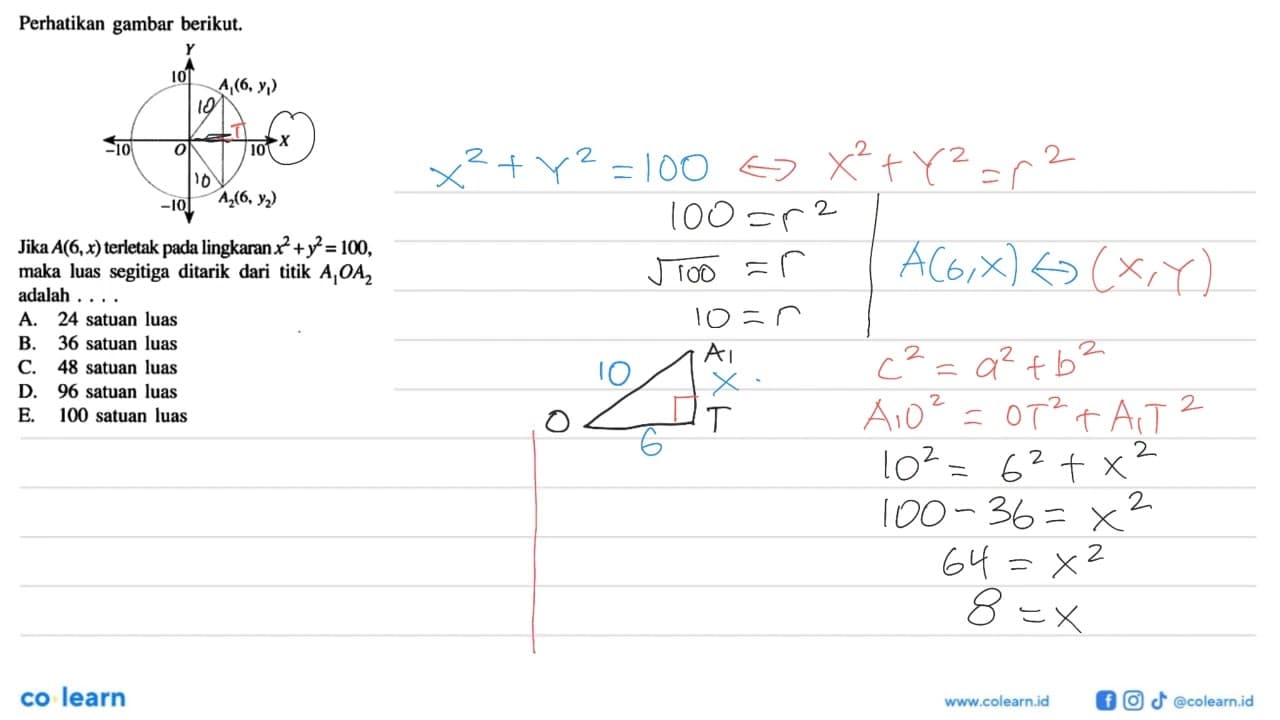 Perhatikan gambar berikut.
Y
10
A₁(6, y₁)
10
T
-10
O
10
X
10
-10
A₂(6, y₂)
Jika A(6, x) terletak pada lingkaran x² + y² = 100,
maka luas segitiga ditarik dari titik A₁OA₂
adalah . . . .
A. 24 satuan luas
B. 36 satuan luas
C. 48 satuan luas
D. 96 satuan luas
E. 100 satuan luas
x² + y² = 100 ⇔ x² + y² = r²
100 = r²
√100 = r
10 = r
A(6,x) ⇔ (x,y)
10
A₁
x
O
6
T
c² = a² + b²
A₁O² = OT² + A₁T²
10² = 6² + x²
100 - 36 = x²
64 = x²
8 = x
co learn
www.colearn.id
@colearn.id